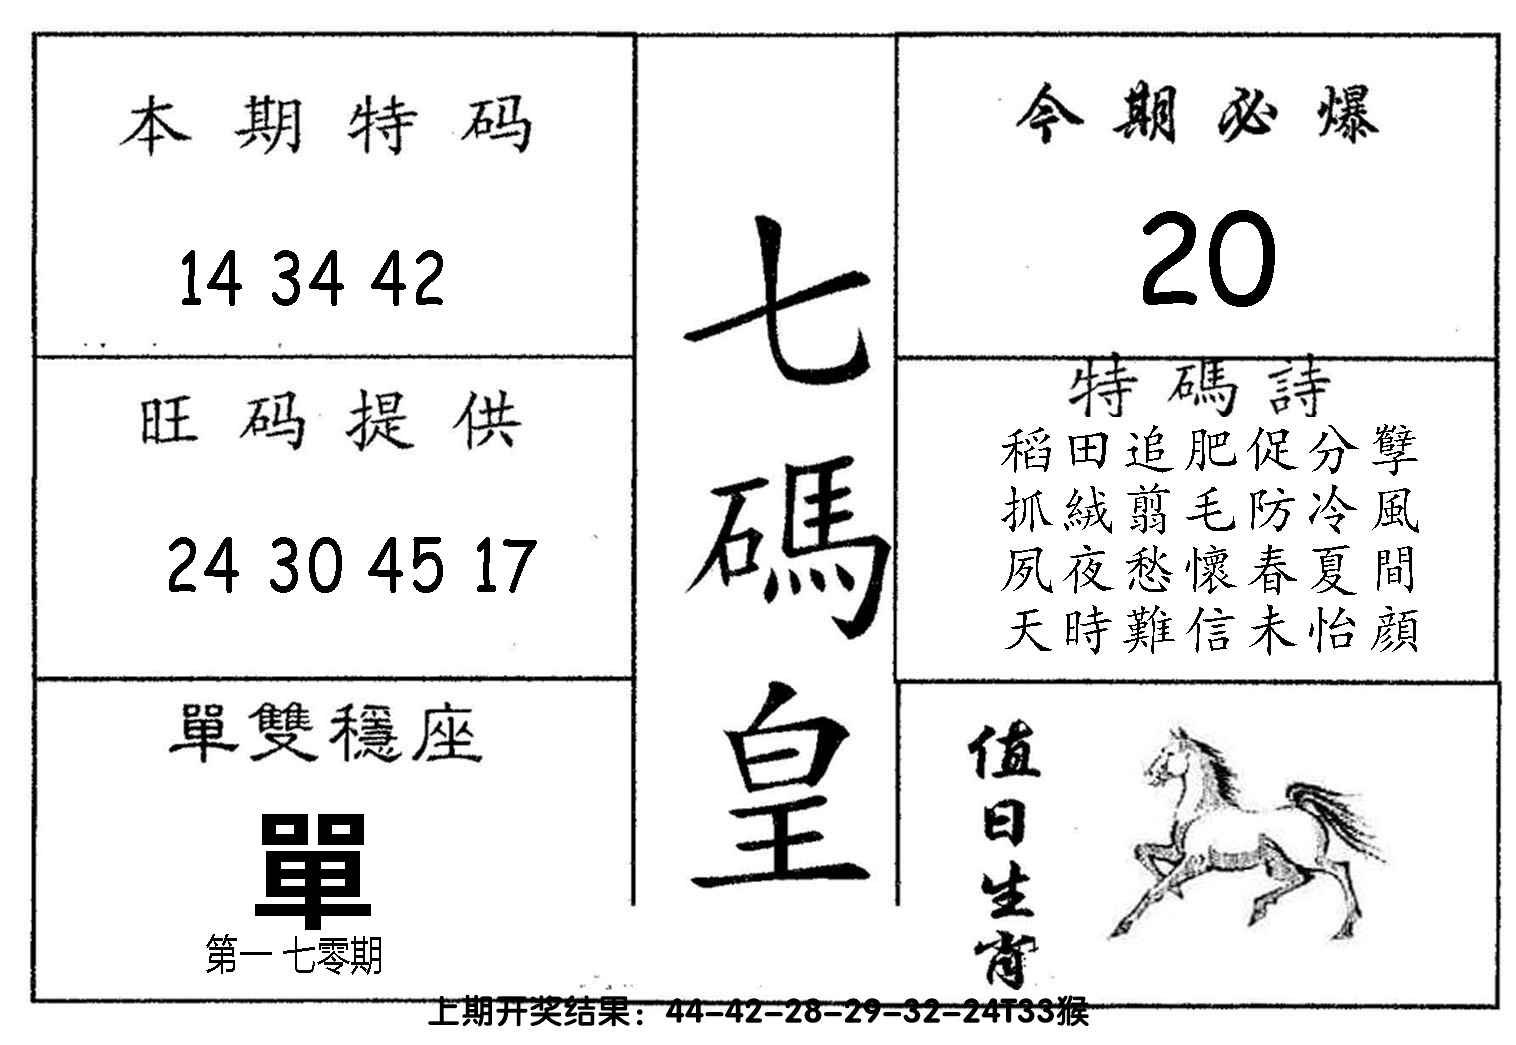 本期特码
14 34 42
旺码提供
24 30 45 17
單雙穩座
單
第一七零期
七碼皇
今期必爆
20
特碼詩
稻田追肥促分孽
抓絨翦毛防冷風
夙夜愁懷春夏間
天時難信未怡顔
值日生肖
上期开奖结果：44-42-28-29-32-24T33猴